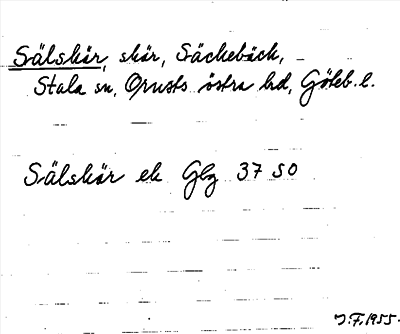 Sälskär, skär, Säckebäck,
Stala sn, Orusts östra hd, Göteb. l.
Sälskär ek Glg 37 SO
J.F. 1955.